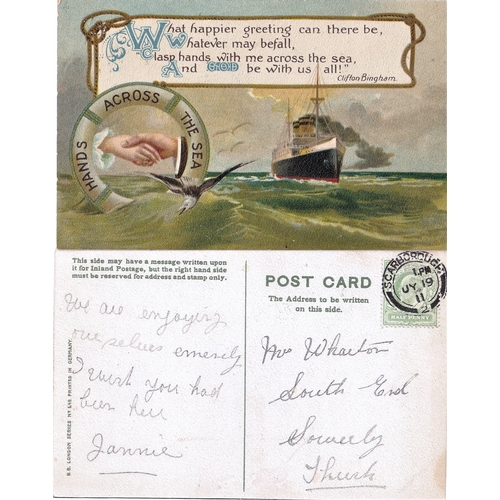 What happier greeting can there be,
Whatever may befall,
Clasp hands with me across the sea,
And GOD be with us all!"
Clifton Bingham.
HANDS ACROSS THE SEA
This side may have a message written upon
it for Inland Postage, but the right hand side
must be reserved for address and stamp only.
POST CARD
The Address to be written
on this side.
SCARBOROUGH
1.PM
JY 19
11
HALF PENNY
We are enjoying
ourselves emensly
I wish you had
been here
Fannie
Mrs Wharton
South End
Sowerby
Thirsk
PRINTED IN GERMANY.
LONDON SERIES